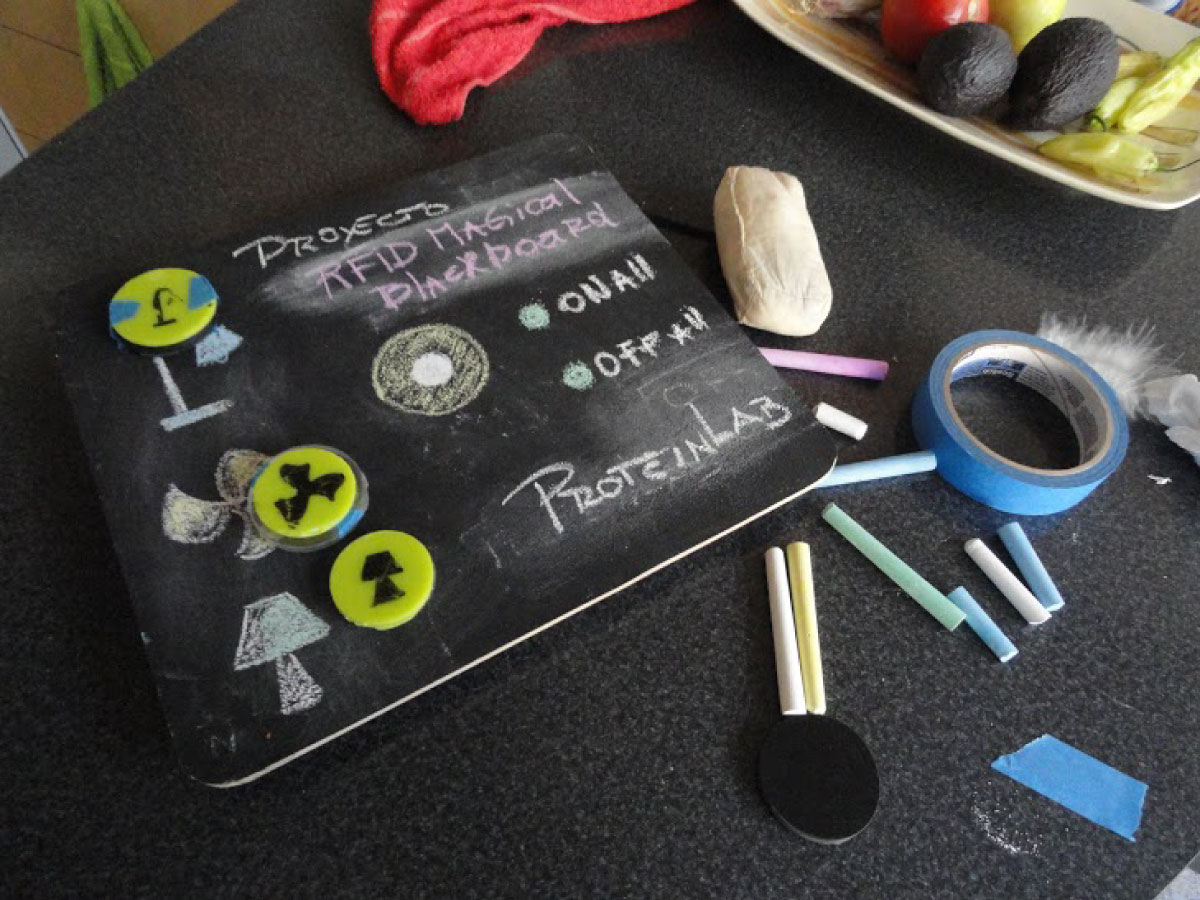 PROYECTO
RFID MAGical
Blackboard
ONAll
OFF All
PROTEINLAB